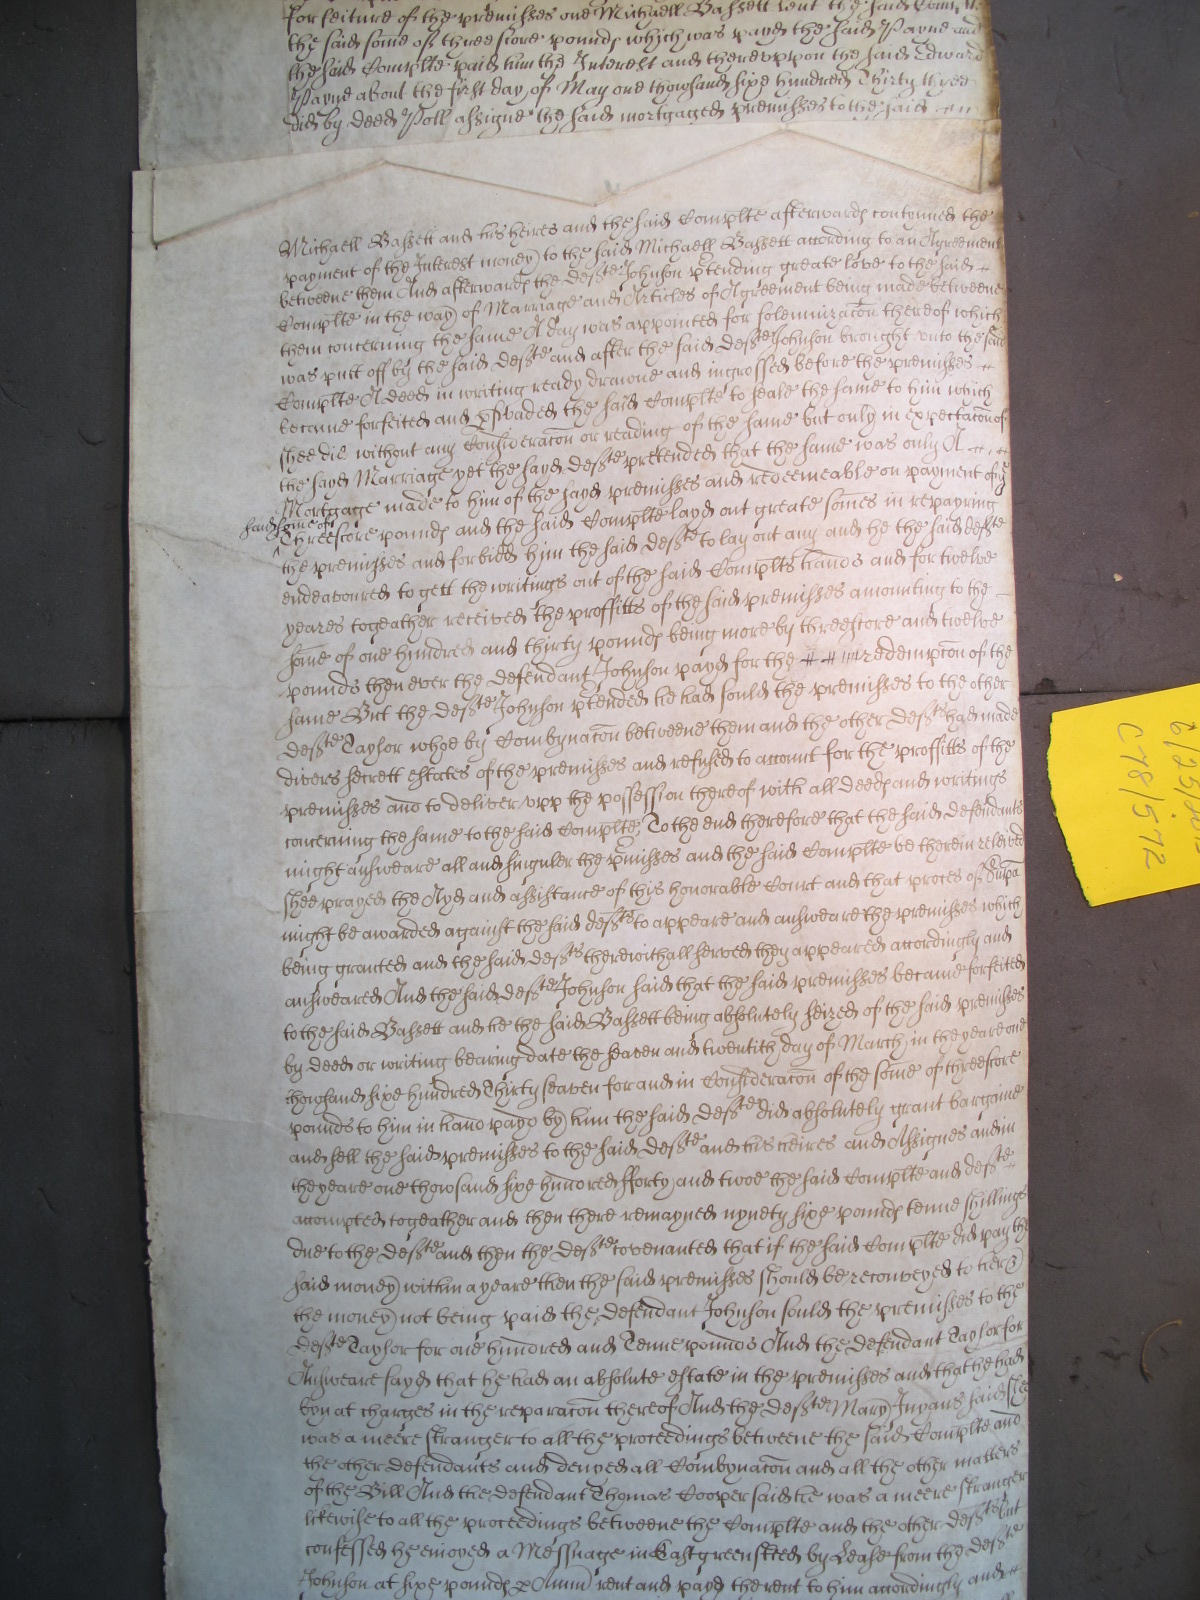 forfeiture of the premisses one Michaell Bassett lent the said Complte
the said some of threescore pounds which was payd the said Payne and
the said Complte paid him the Interest and thereuppon the said Edward
Payne about the first day of May one thowsand sixe hundred Thirty three
did by deed Poll assigne the said mortgaged premisses to the said
Michaell Bassett and his heires and the said Complte afterwards contynued the
payment of the Interest money to the said Michaell Bassett according to an Agreement
betweene them And afterwards the Defte Johnson ptending greate love to the said
Complte in the way of Marriage and Articles of Agreement being made betweene
them concerning the same A day was appointed for solemnizacon thereof which
was putt off by the said Defte and after the said Defte Johnson brought unto the said
Complte A deed in writing ready drawne and ingrossed before the premisses
became forfeited and pswaded the said Complte to seale the same to him which
shee did without any Consideracon or reading of the same but only in expectacon of
the sayd Marriage yet the sayd Defte pretended that the same was only A
Mortgage made to him of the sayd premisses and redeemeable on payment of ye
said some of
Threescore pounds and the said Complte layd out greate somes in repayring
the premisses and forbidd him the said Defte to lay out any and he the said Defte
endeavoured to gett the writings out of the said Complts hands and for twelve
yeares togeather received the proffitts of the said premisses amounting to the
some of one hundred and thirty pounds being more by threescore and twelve
pounds then ever the defendant Johnson payd for the redempcon of the
same But the Defte Johnson ptended he had sould the premisses to the other
Defte Taylor whoe by Combynacon betweene them and the other Defts had made
divers secrett estates of the premisses and refused to accoumt for the proffitts of the
premisses and to deliver upp the possession thereof with all deeds and writings
concerning the same to the said Complte, To the end therefore that the said defendants
might answeare all and singuler the pmisses and the said Complte be therein releived
shee prayed the Ayd and assistance of this honorable Court and that proces of Subpa
might be awarded against the said Defts to appeare and answeare the premisses which
being granted and the said Defts therewithall served they appeared accordingly and
answeared And the said Defte Johnson said that the said premisses became forfeited
to the said Bassett and he the said Bassett being absolutely seized of the said premisses
by deed or writing bearing date the seaven and twentith day of March in the yeare one
thowsand sixe hundred Thirty seaven for and in Consideracon of the some of threescore
pounds to him in hand payd by him the said Defte did absolutely grant bargaine
and sell the said premisses to the said Defte and his heires and Assignes and in
the yeare one thowsand sixe hundred fforty and twoe the said Complte and Defte
accompted togeather and then there remayned nynety sixe pounds tenne shillings
due to the Defte and then the Defte covenanted that if the said Complte did pay the
said money within a yeare then the said premisses should be reconveyed to her
the money not being paid the defendant Johnson sould the premisses to the
Defte Taylor for one hundred and Tenne pounds And the defendant Taylor for
Answeare sayd that he had an absolute estate in the premisses and that he had
byn at charges in the reparacon thereof And the Defte Mary Inyans said she
was a meere stranger to all the proceedings betweene the said Complte and
the other defendants and denyed all Combynacon and all the other matters
of the Bill And the defendant Thomas Cooper said he was a meere stranger
likewise to all the proceedings betweene the Complte and the other Defts but
confessed he enioyed a Messuage in Eastgreensted by Lease from the Defte
Johnson at sixe pounds p Annu rent and payd the rent to him accordingly and
C78/572